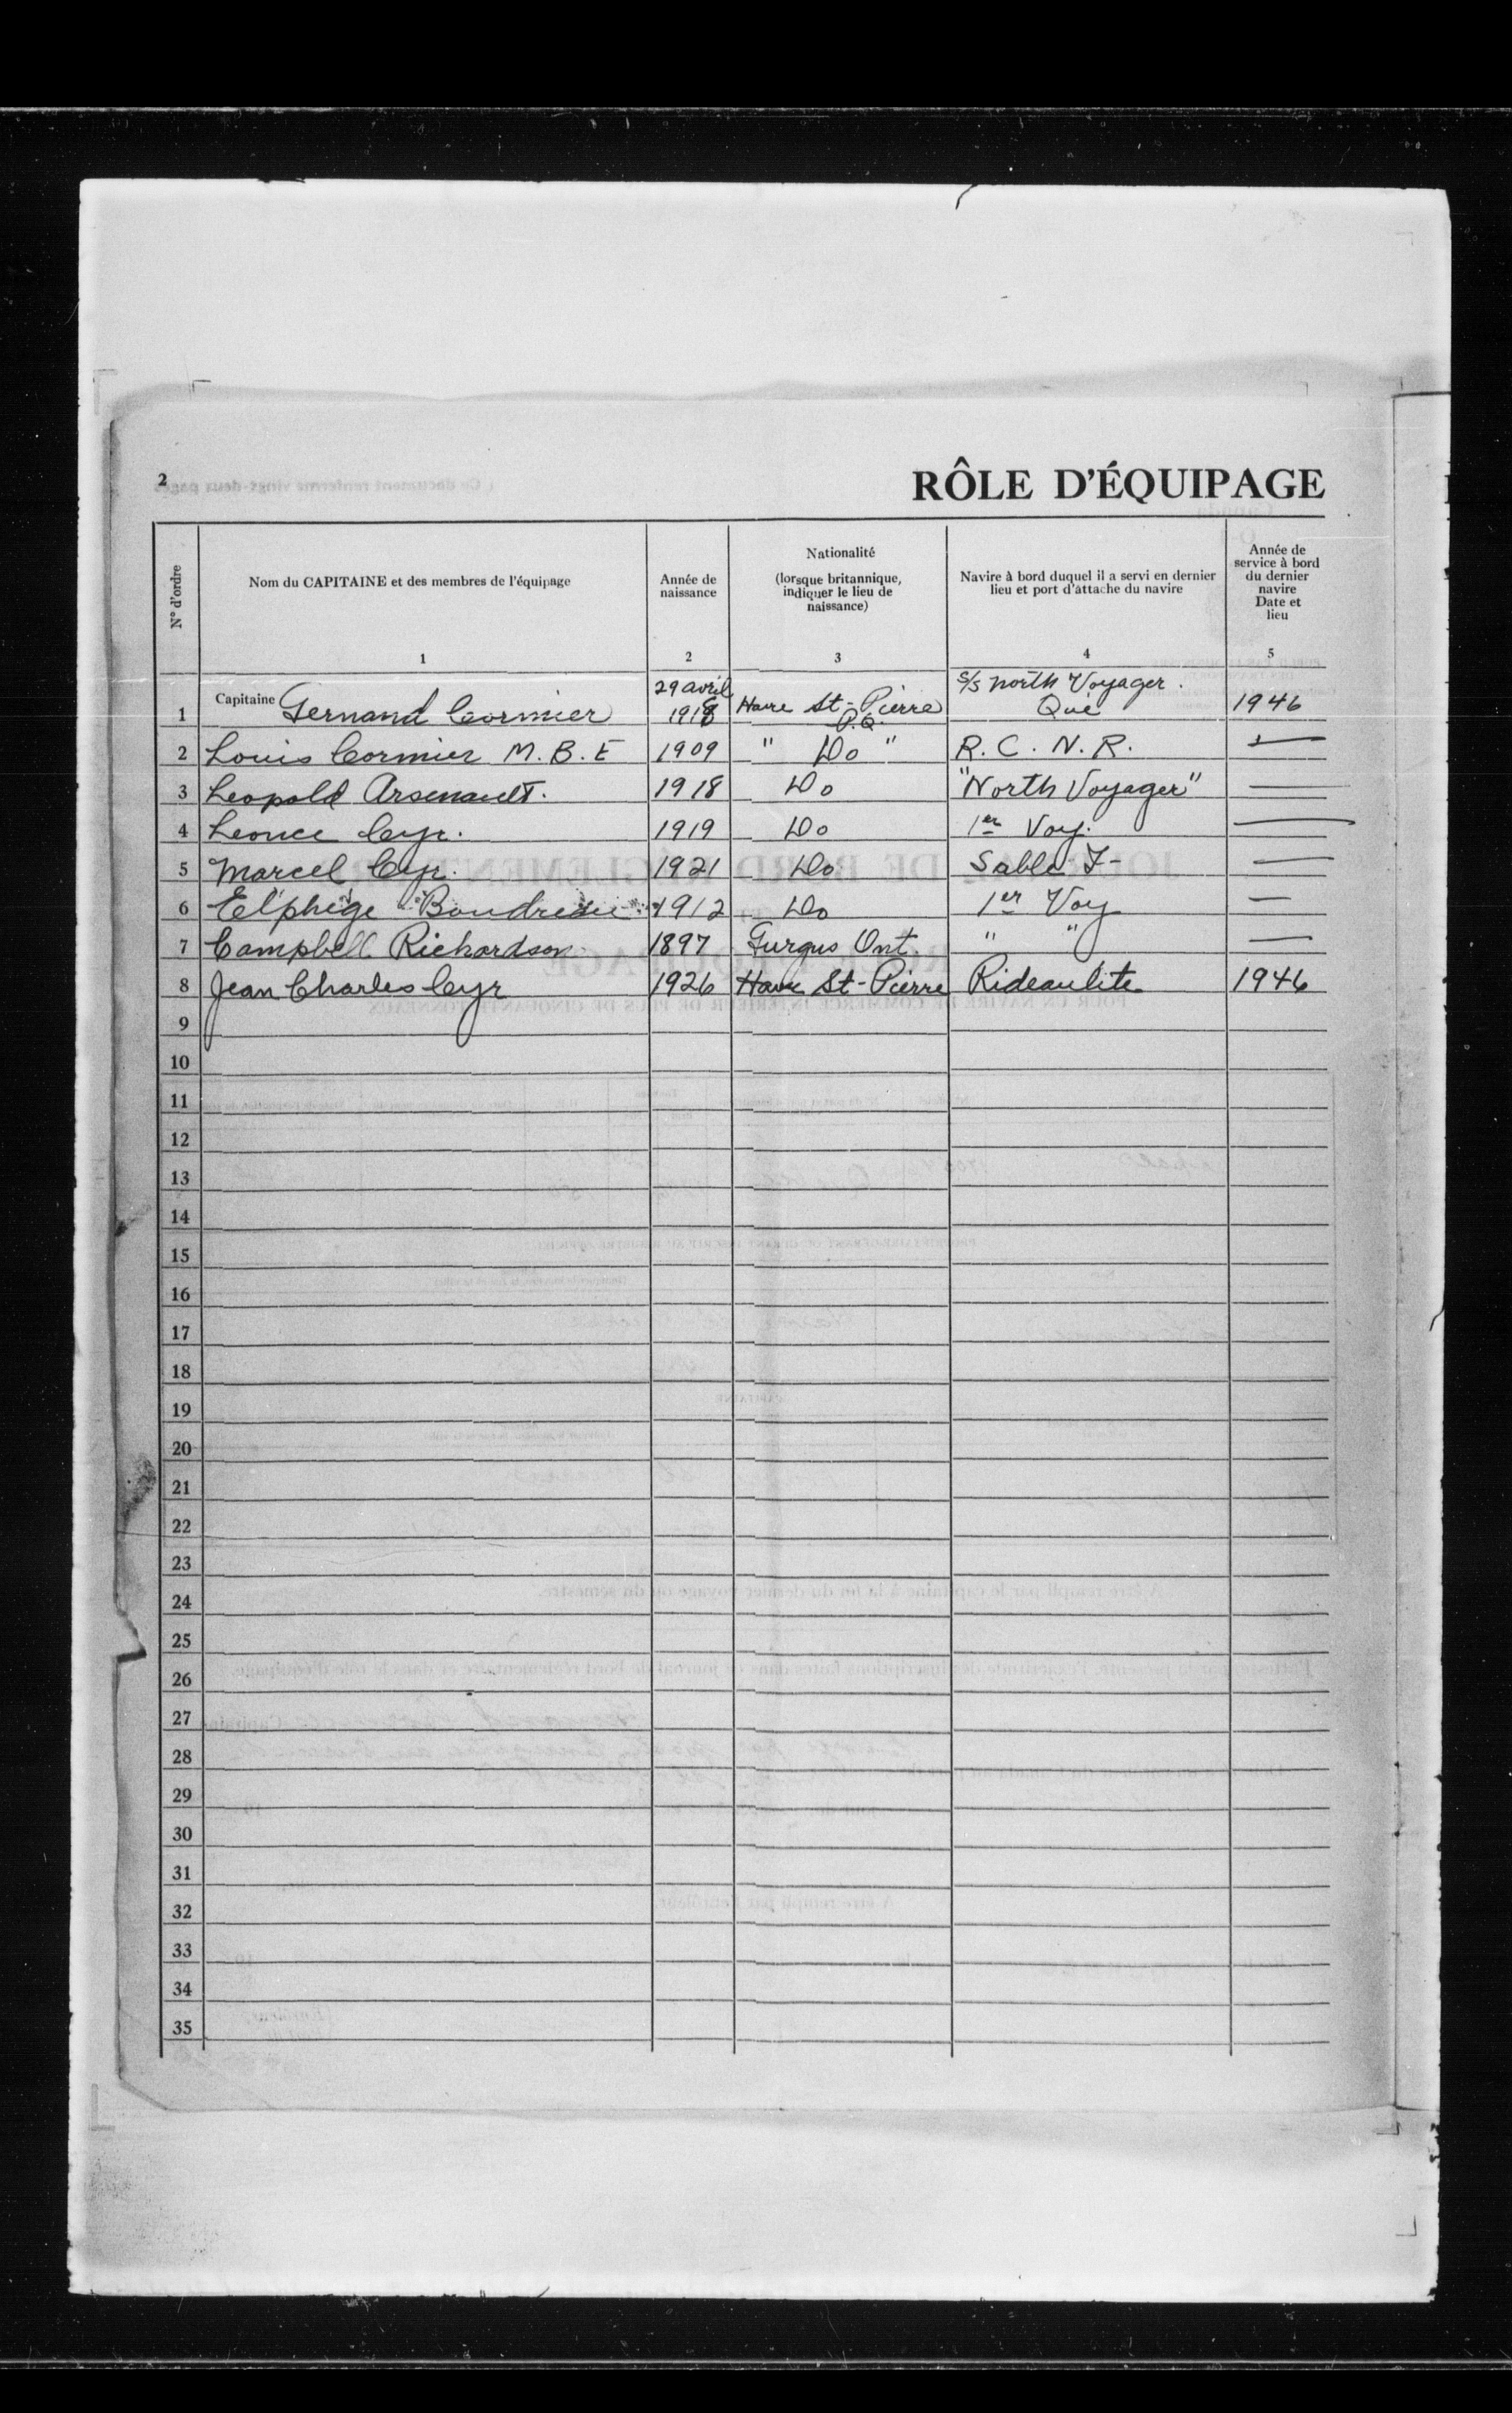 2
RÔLE D'ÉQUIPAGE
N° d'ordre
Nom du CAPITAINE et des membres de l'équipage
1
Année de naissance
2
Nationalité
(lorsque britannique, indiquer le lieu de naissance)
3
Navire à bord duquel il a servi en dernier lieu et port d'attache du navire
4
Année de service à bord du dernier navire Date et lieu
5
1 Capitaine Fernand Cormier 29 avril 1918 Havre St-Pierre P.Q. S/S North Voyager. Qué 1946
2 Louis Cormier M.B.E 1909 " Do " R.C.N.R. —
3 Leopold Arsenault. 1918 Do "North Voyager" —
4 Leonce Cyr. 1919 Do 1er Voy. —
5 Marcel Cyr. 1921 Do Sable I- —
6 Elphège Boudreau 1912 Do 1er Voy —
7 Campbell Richardson 1897 Furgus Ont. " " —
8 Jean Charles Cyr 1926 Havre St-Pierre Rideaulite 1946
9
10
11
12
13
14
15
16
17
18
19
20
21
22
23
24
25
26
27
28
29
30
31
32
33
34
35